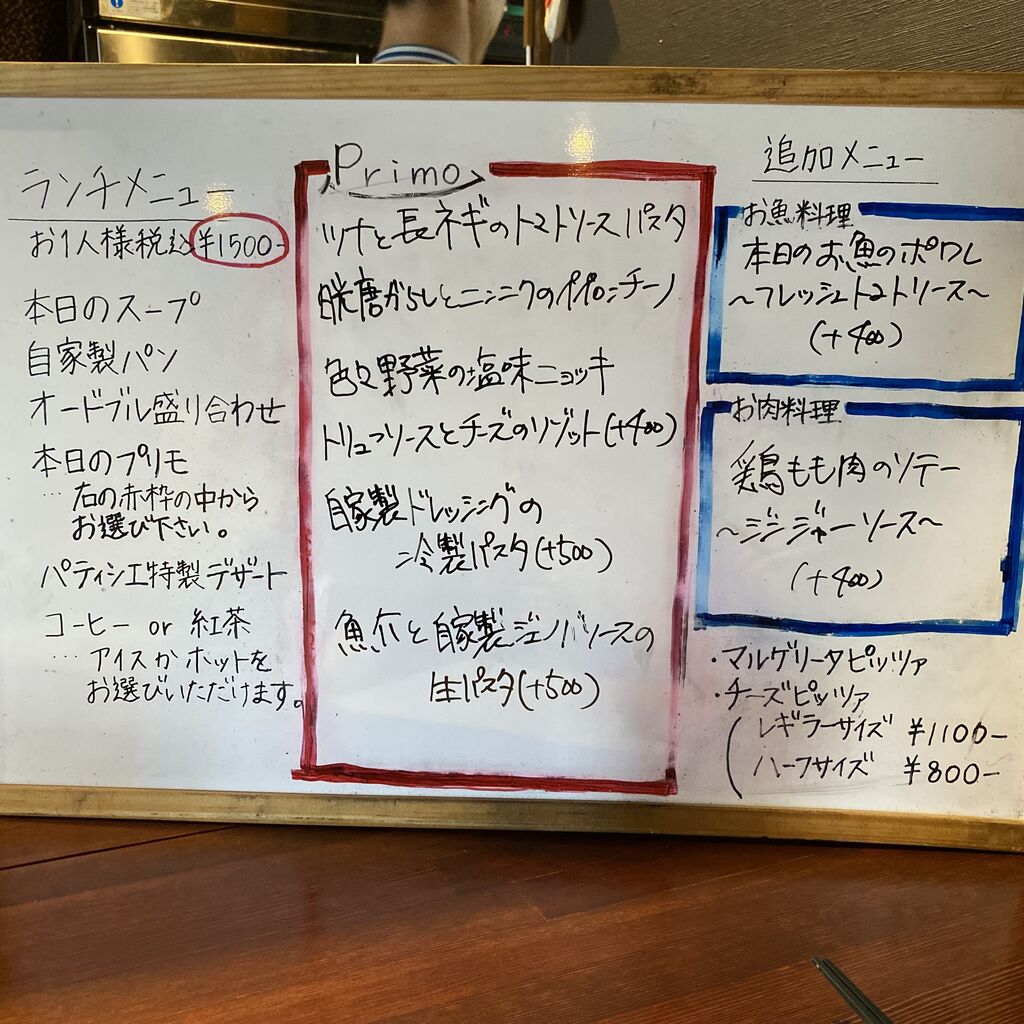 ランチメニュー
お1人様税込¥1500-
本日のスープ
自家製パン
オードブル盛り合わせ
本日のプリモ
…右の赤枠の中から
お選び下さい。
パティシエ特製デザート
コーヒー or 紅茶
…アイスかホットを
お選びいただけます。
Primo
ツナと長ネギのトマトソースパスタ
唐がらしとニンニクのペペロンチーノ
色々野菜の塩味ニョッキ
トリュフソースとチーズのリゾット(+400)
自家製ドレッシングの
冷製パスタ(+500)
魚介と自家製ジェノバソースの
生パスタ(+500)
追加メニュー
お魚料理
本日のお魚のポワレ
～フレッシュトマトソース～
(+400)
お肉料理
鶏もも肉のソテー
～ジンジャーソース～
(+400)
・マルゲリータピッツァ
・チーズピッツァ
レギラーサイズ ¥1100-
ハーフサイズ ¥800-